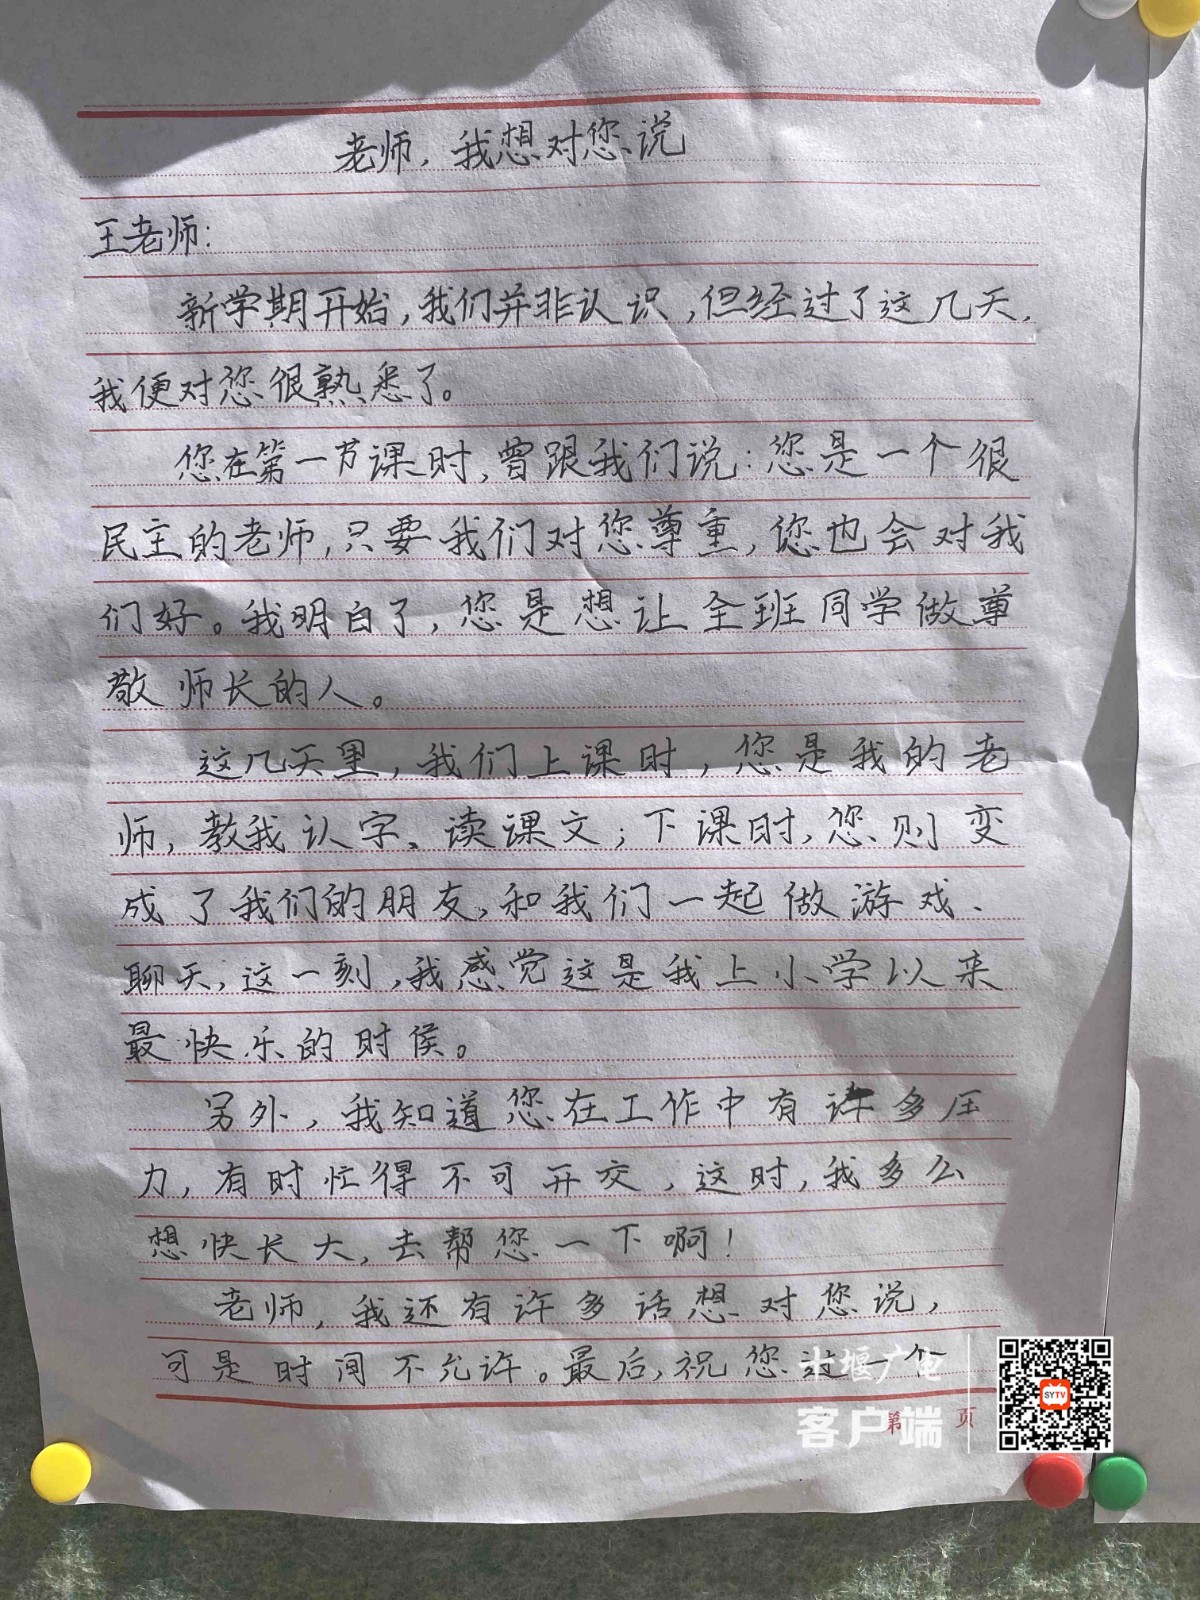 老师，我想对您说
王老师：
新学期开始，我们并非认识，但经过了这几天，
我便对您很熟悉了。
您在第一节课时，曾跟我们说：您是一个很
民主的老师，只要我们对您尊重，您也会对我
们好。我明白了，您是想让全班同学做尊
敬师长的人。
这几天里，我们上课时，您是我的老
师，教我认字、读课文；下课时，您则变
成了我们的朋友，和我们一起做游戏、
聊天，这一刻，我感觉这是我上小学以来
最快乐的时侯。
另外，我知道您在工作中有许多压
力，有时忙得不可开交，这时，我多么
想快长大，去帮您一下啊！
老师，我还有许多话想对您说，
可是时间不允许。最后，祝您过一个
十堰广电
客户端
第 页
SYTV